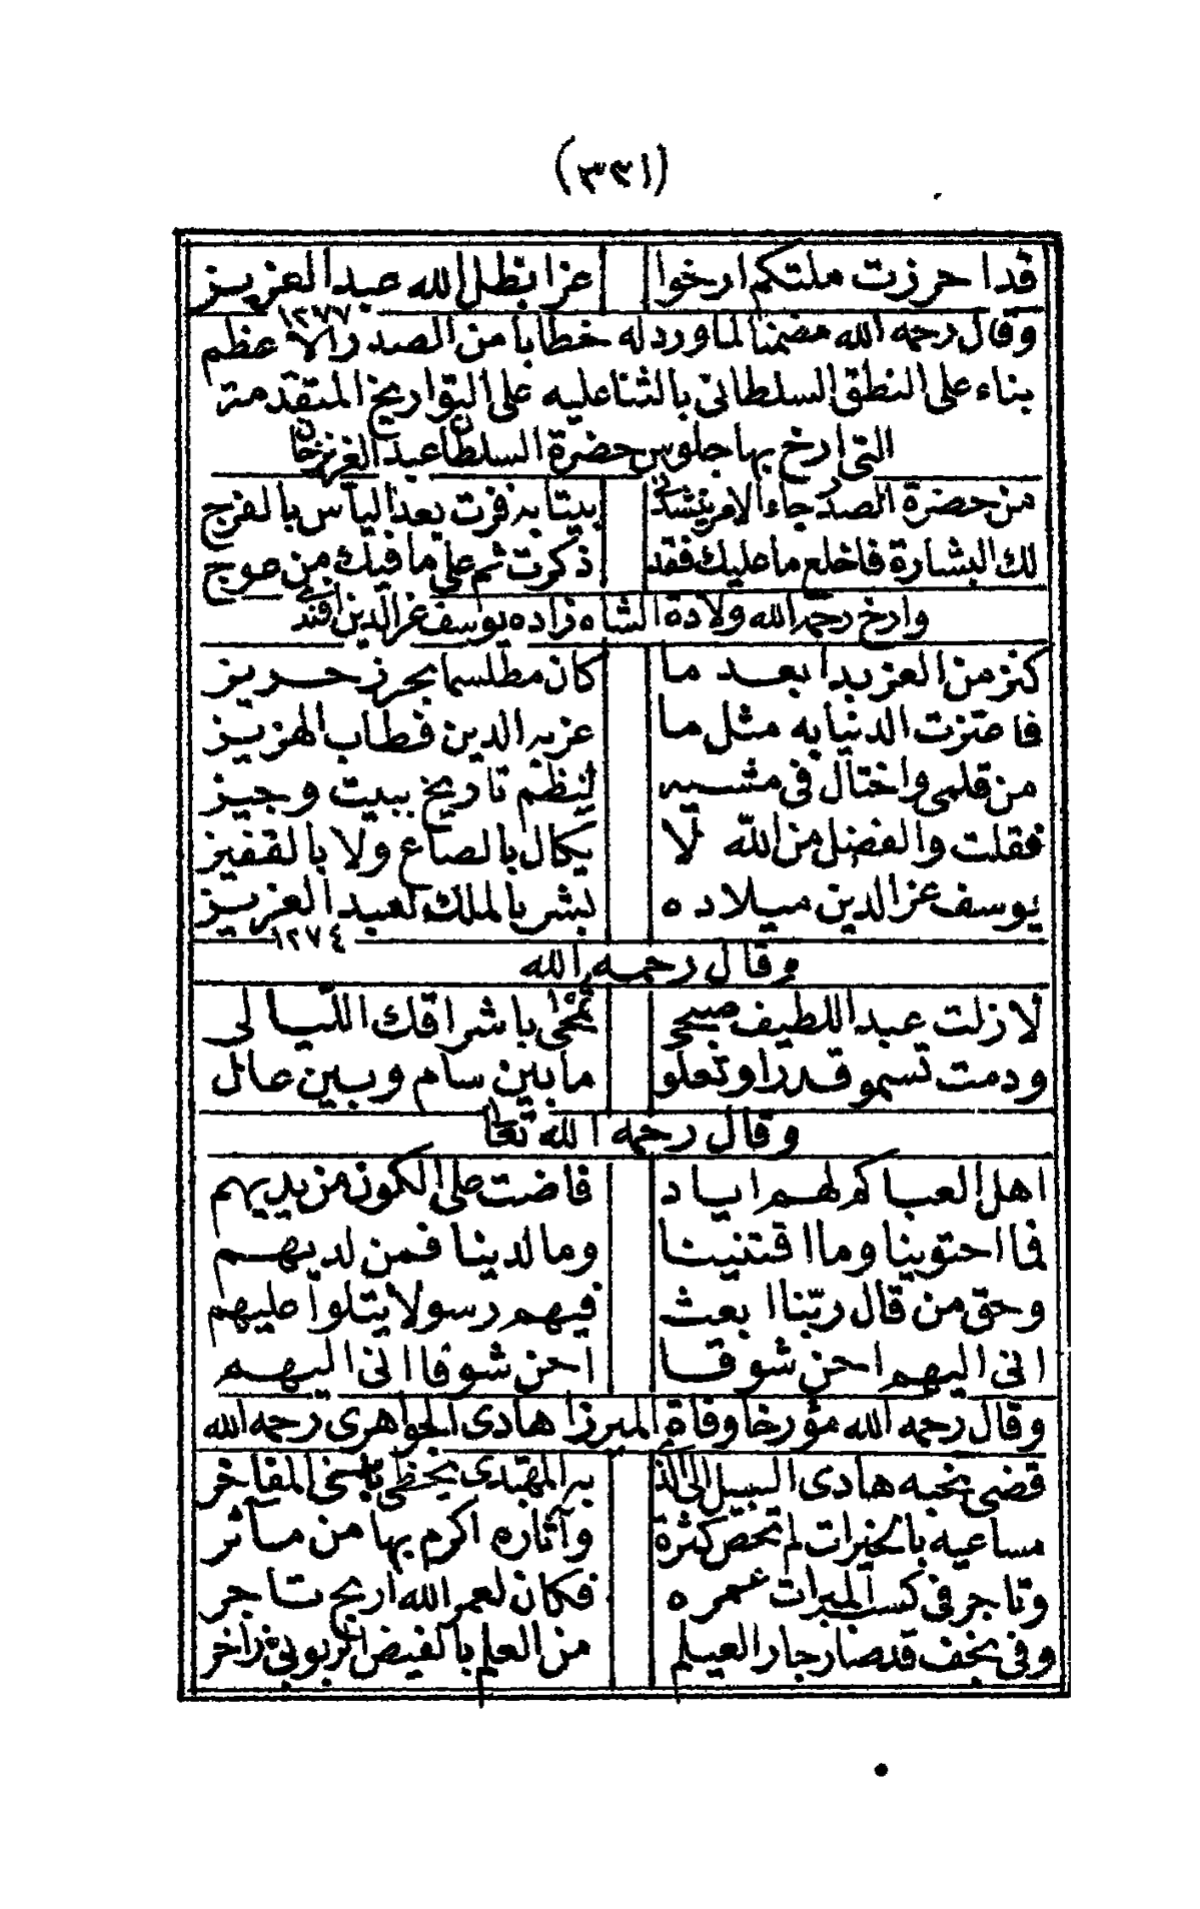 (٣٣١)
قد احرزت ملتكم ارخوا عزا بظل الله عبد العزيز
١٢٧٧
وقال رحمه الله مضمنا لما ورد له خطابا من الصدر الاعظم
بناء على النطق السلطاني بالثنا عليه على التواريخ المتقدمة
التي ارخ بها جلوس حضرة السلطان عبد العزيز خان
من حضرة الصدر جاء الامر ينشدني بيتا به فزت بعد اليأس بالفرج
لك البشارة فاخلع ما عليك فقد ذكرت ثم على ما فيك من عوج
وارخ رحمه الله ولادة الشاه زاده يوسف عز الدين افندي
كنز من العز بدا بعد ما كان مطلسما بحرز حريز
فاهتزت الدنيا به مثل ما عز به الدين فطاب الهزيز
من قلمي واختال في مشيه لنظم تاريخ ببيت وجيز
فقلت والفضل من الله لا يكال بالصاع ولا بالقفيز
يوسف عز الدين ميلاده بشر بالملك لعبد العزيز
١٢٧٤
وقال رحمه الله
لازلت عبد اللطيف صبحي تمحى باشراقك الليالي
ودمت تسمو قدرا وتعلو ما بين سام وبين عال
وقال رحمه الله تعالى
اهل العبا كم لهم اياد فاضت على الكون من يديهم
فما احتوينا وما اقتنينا وما لدينا فمن لديهم
وحق من قال ربنا ابعث فيهم رسولا يتلوا عليهم
اني اليهم احن شوقا احن شوقا اني اليهم
وقال رحمه الله مؤرخا وفاة الميرزا هادي الجواهري رحمه الله
قضى نحبه هادي السبيل الى الذي به المهتدى يحظى باسنى المفاخر
مساعيه بالخيرات لم تحص كثرة وآثاره اكرم بها من مآثر
وتاجر في كسب المبرات عمره فكان لعمر الله اربح تاجر
وفي نجف قد صار جار العيلم من العلم بالفيض الربوبي زاخر